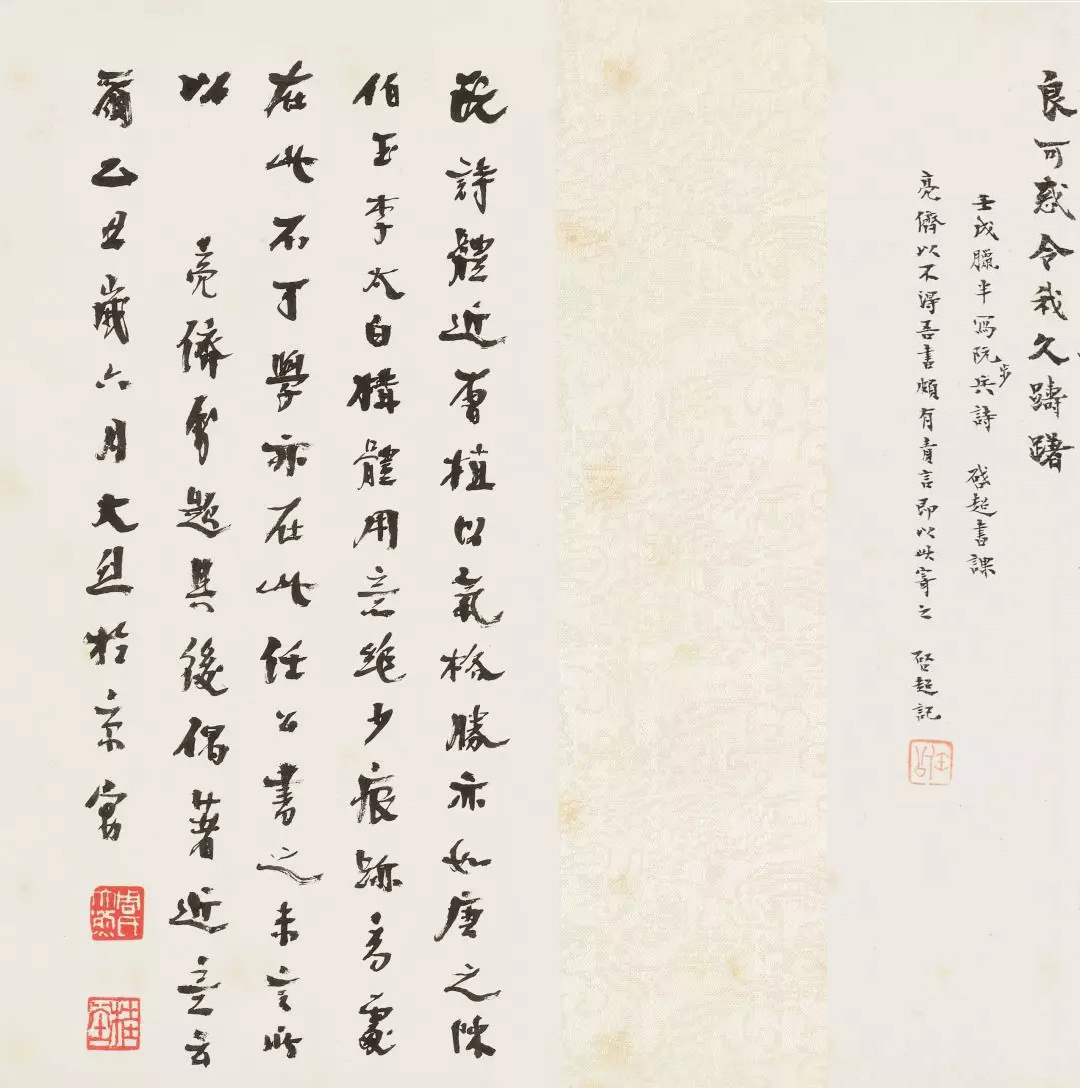 良可惑令我久躊躇
壬戌臘半寫阮步兵詩 啓超書課
亮儕以不得吾書頗有責言即以此寄之 啓超記
任公
阮詩體近曹植以氣格勝亦如唐之陳
伯玉李太白構體用意絶少痕跡高處
在此不可學亦在此任公書之未言所
以 亮儕屬題其後偶著近意云
爾乙丑歲六月大烈於京寓
周氏大烈